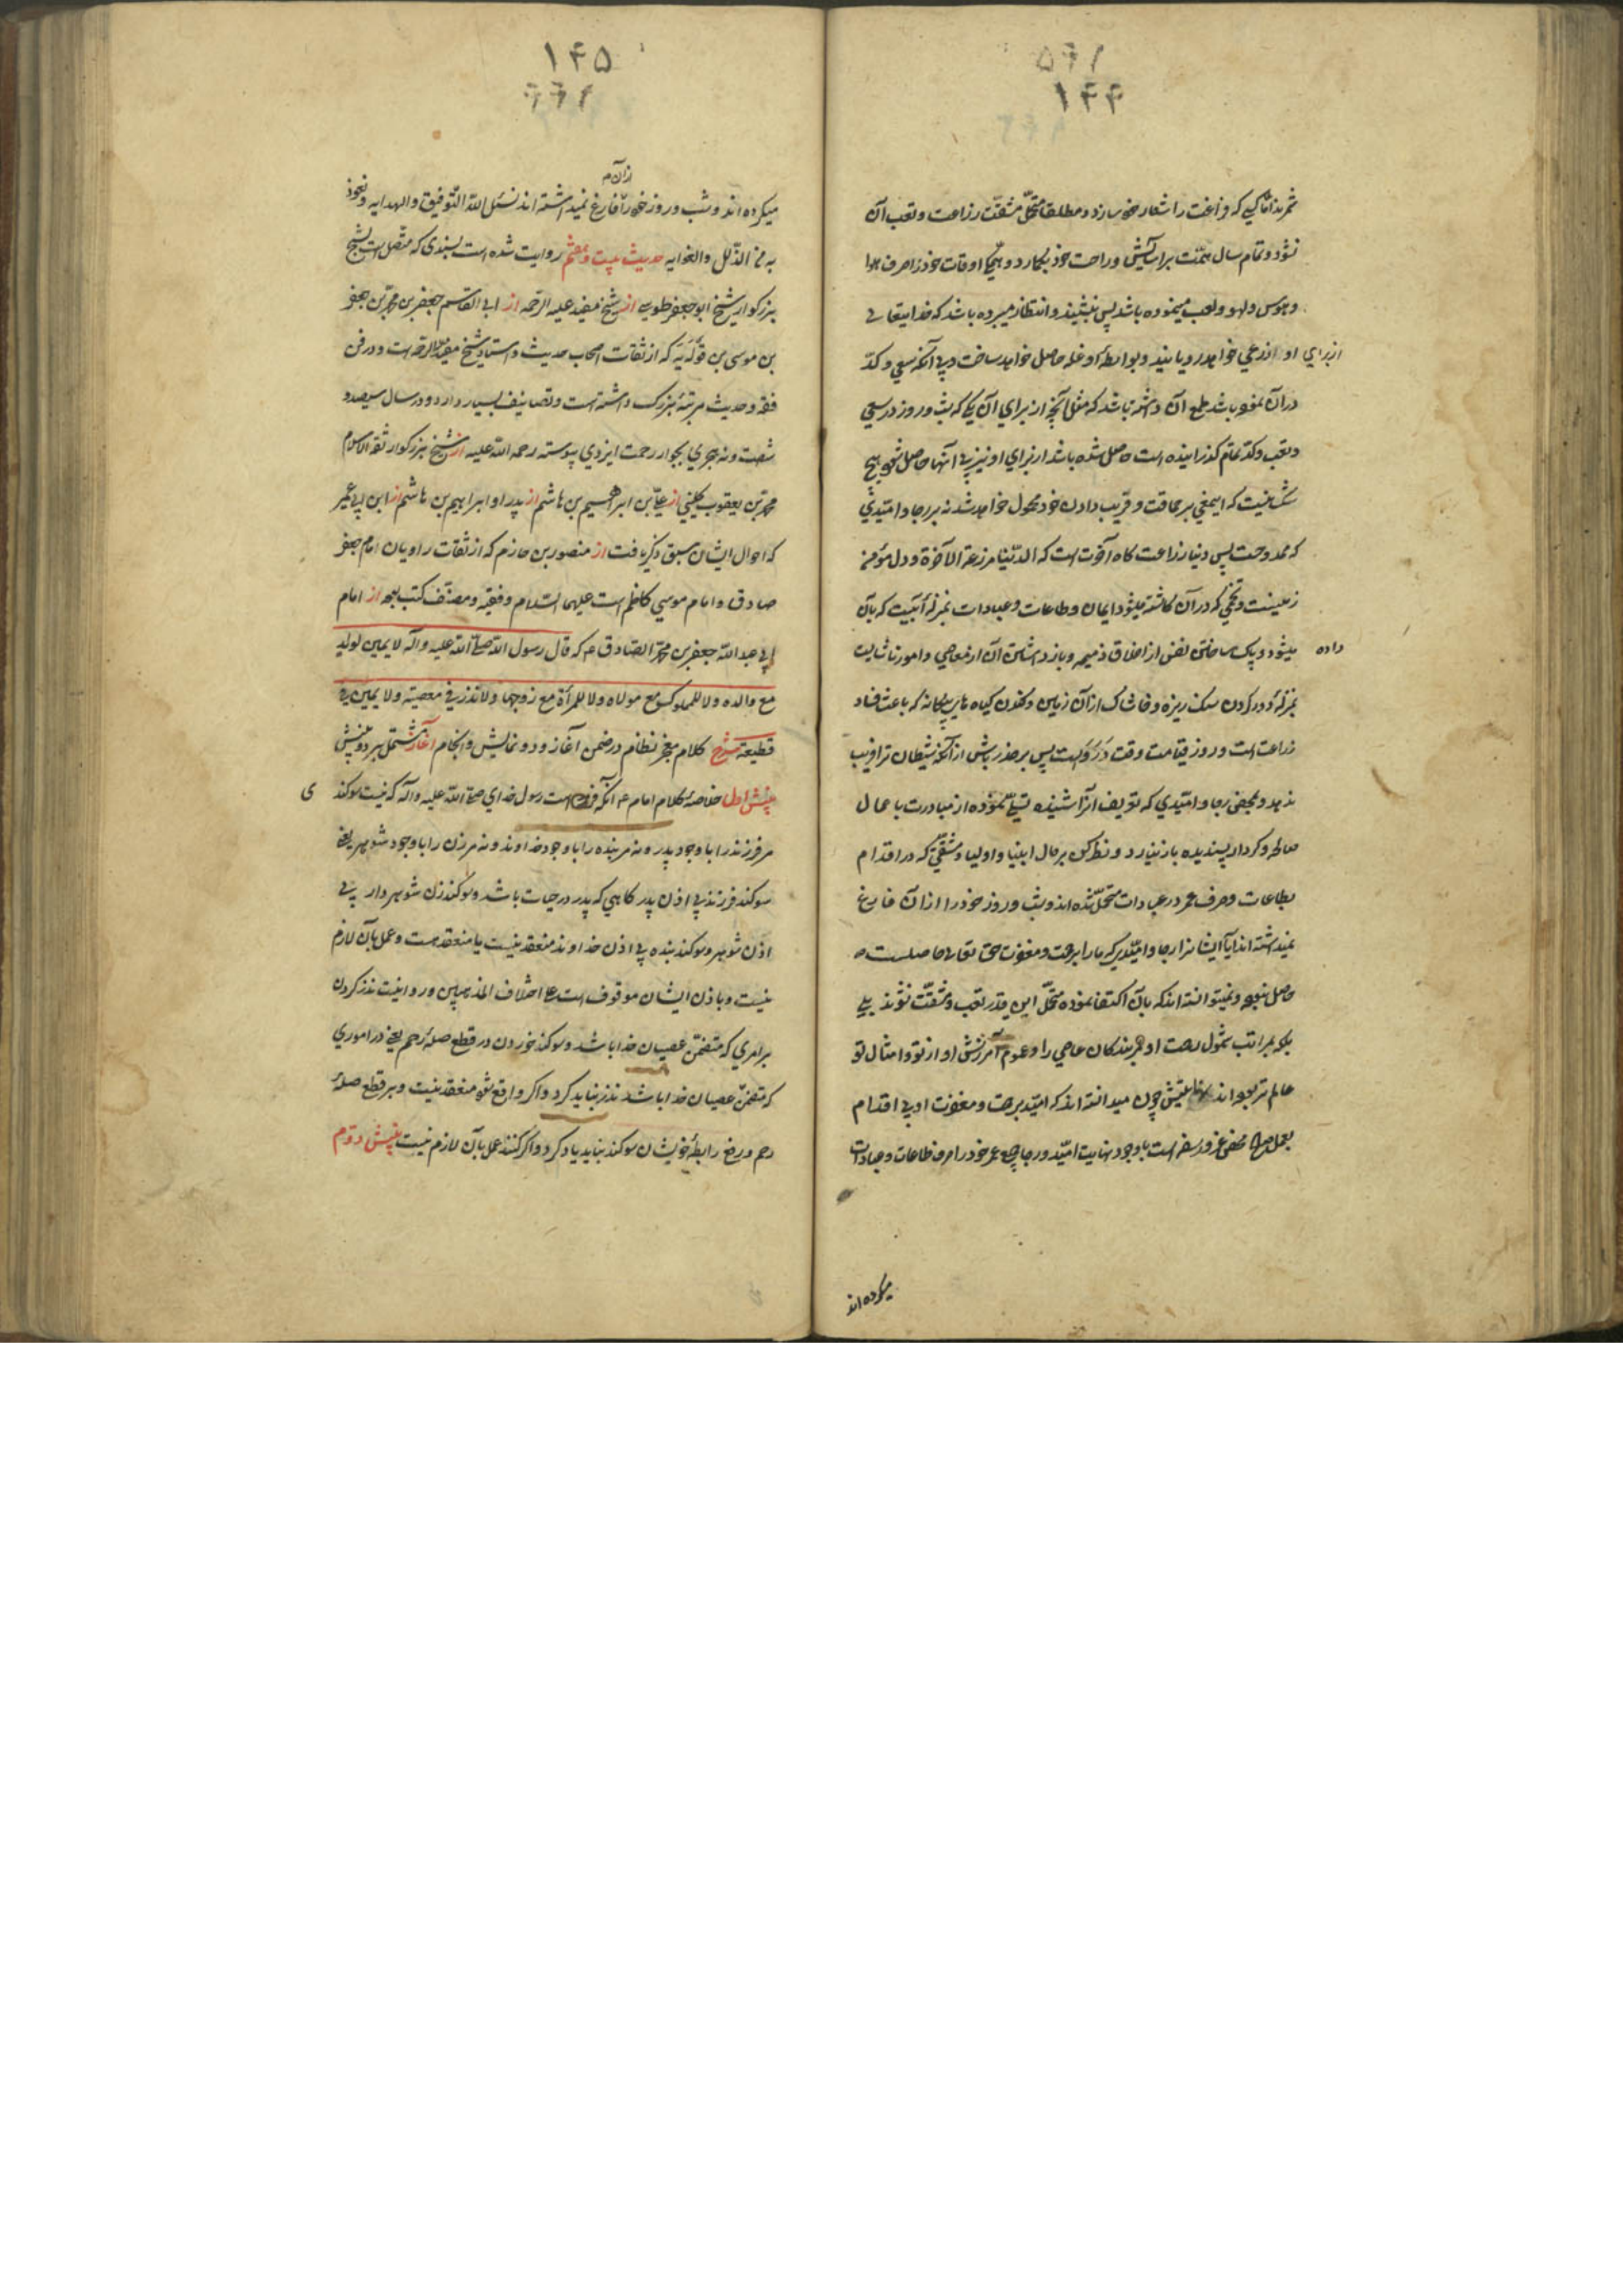 ۱۴۴
ثمر بذا ما کسی که فراغت را شعار خود سازد و مطلقا متحمّل مشقّت زراعت و تعب آن
نشود و تمام سال همّت بر آسایش و راحت خود بکمارد و همکی اوقات خود را صرف هوا
و هوس و لهو و لعب مینموده باشد پس بنشیند و انتظار میبرده باشد که خدایتعالی
از برای او زرعی خواهد رویانید و بواسطهٔ او غله حاصل خواهد ساخت و بی آنکه سعی و کدّ
در آن نموده باشد طمع آن داشته باشد که مثل آنچه از برای آن یکی که شب و روز در سعی
و تعب و کد تمام کذرانیده است حاصل شده باشد از برای او نیز بی اینها حاصل شود هیچ
شک نیست که اینمعنی بر حماقت و فریب دادن خود محمول خواهد شد نه بر رجا و امّیدی
که ممدوحست پس دنیا زراعت کاه آخرت است که الدّنیا مزرعة الآخرة و دل مؤمن
زمینست و تخمی که در آن کاشته میشود ایمان و طاعات و عبادات بمنزلهٔ آبیست که بآن
داده
میشود و پاک ساختن نفس از اخلاق ذمیمه و باز داشتن آن از معاصی و امور ناشایست
بمنزلهٔ دور کردن سنک ریزه و خاشاک از آن زمین و کندن کیاه های بیکانه که باعث فساد
زراعت است و روز قیامت وقت دَرَو است پس بر حذر باش از آنکه شیطان ترا فریب
ندهد و بمحض رجا و امّیدی که تعریف آنرا شنیده تسلّی نموده از مبادرت باعمال
صالحه و کردار پسندیده باز نیارد و نظر کن بر حال انبیا و اولیا و مشقّتی که در اقدام
بطاعات و صرف عمر در عبادات متحمّل شده اند و شب و روز خود را از آن فارغ
نمیداشته اند آیا ایشانرا رجا و امّیدی که ما را برحمت و مغفرت حق تعالی حاصلست
حاصل نبوده و نمیتوانسته اند که بآن اکتفا نموده متحمّل این قدر تعب و مشقّت نشوند بلی
بلکه بمراتب شمول رحمت او مر بندکان عاصی را و عموم آمرزش او از تو و امثال تو
عالم تر بوده اند چون میدانسته اند که امّید برحمت و مغفرت او بی اقدام
بعمل صالح محض غرور و سفه است با وجود نهایت امّید و رجا جمیع عمر خود را صرف طاعات و عبادات
میکرده اند
۱۴۵
از آن
میکرده اند و شب و روز خود را فارغ نمیداشته اند نسئل الله التّوفیق و الهدایه و نعوذ
به من الذّلل و الغوایه حدیث بیست و هفتم روایت شده است بسندی که متّصل است بشیخ
بزرکوار شیخ ابو جعفر طوسی از شیخ مفید علیه الرّحمه از ابی القاسم جعفر بن محمّد بن جعفر
بن موسی بن قولَوَیه که از ثقات اصحاب حدیث و استاد شیخ مفید علیه الرحمه است و در فن
فقه و حدیث مرتبهٔ بزرک داشته است و تصانیف بسیار دارد و در سال سیصد و
شصت و نه هجری بجوار رحمت ایزدی پیوسته رحمه الله علیه از شیخ بزرکوار ثقة الاسلام
محمّد بن یعقوب کلینی از علیّ بن ابراهیم بن هاشم از پدر او ابراهیم بن هاشم از ابن ابی عمیر
که احوال ایشان سبق ذکر یافت از منصور بن حازم که از ثقات راویان امام جعفر
صادق و امام موسی کاظم است علیهما السّلام و فقیه و مصنّف کتب بوده از امام
ابی عبد الله جعفر بن محمّد الصّادق ع که قال رسول الله صلّی الله علیه و آله لا یمین لولد
مع والده و لا للمملوک مع مولاه و لا للمرأة مع زوجها و لا نذر فی معصیة و لا یمین فی
قطیعة شرح کلام معجز نظام در ضمن آغاز و دو نمایش و انجام آغاز مشتمل بر دو بینش
بینش اول خلاصهٔ کلام امام ع آنکه فرموده است رسول خدای صلّی الله علیه و آله که نیست سوکند
ی
مر فرزند را با وجود پدر و نه مر بنده را با وجود خداوند و نه مر زن را با وجود شوهر یعنی
سوکند فرزند بی اذن پدر کاهی که پدر در حیات باشد و سوکند زن شوهر دار بی
اذن شوهر و سوکند بنده بی اذن خداوند منعقد نیست یا منعقد هست و عمل بآن لازم
نیست و باذن ایشان موقوف است علی اختلاف المذهبین و روا نیست نذر کردن
بر امری که متضمّن عصیان خدا باشد و سوکند خوردن در قطع صلهٔ رحم یعنی در اموری
که متضمّن عصیان خدا باشد نذر نباید کرد و اکر واقع شود منعقد نیست و بر قطع صلهٔ
رحم و رفع رابطهٔ خویشان سوکند نباید یاد کرد و اکر کنند عمل بآن لازم نیست بینش دوّم